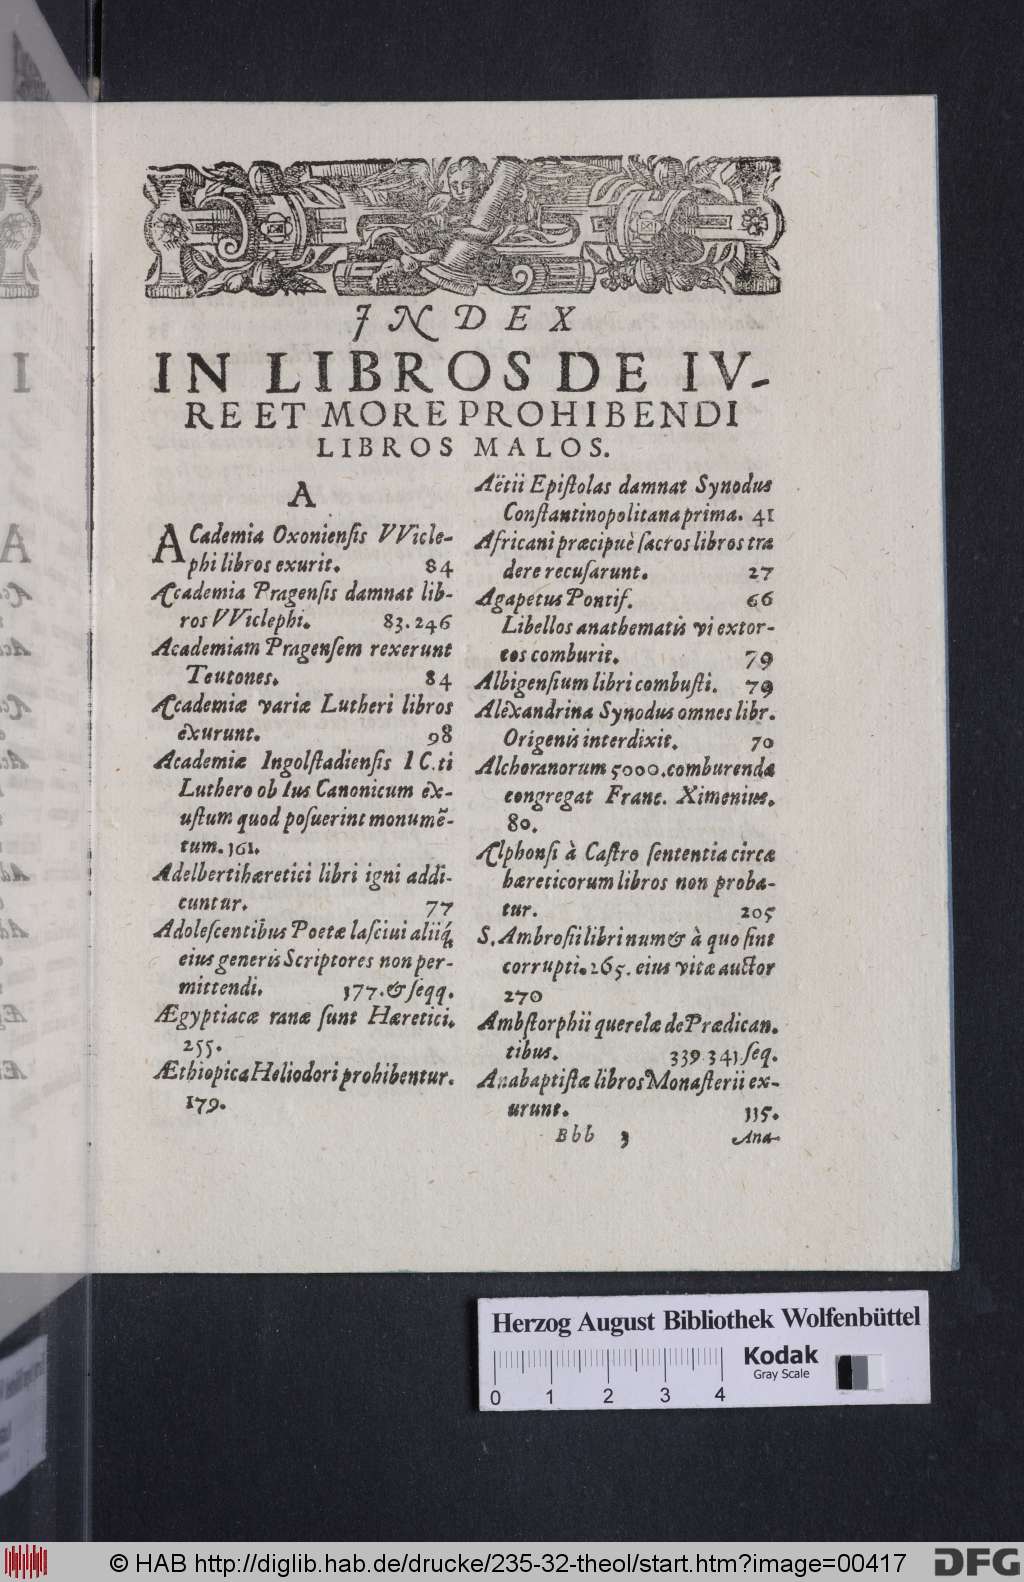 INDEX
IN LIBROS DE IV-
RE ET MORE PROHIBENDI
LIBROS MALOS.
A
ACademia Oxoniensis VVicle-
phi libros exurit. 84
Academia Pragensis damnat lib-
ros VViclephi. 83.246
Academiam Pragensem rexerunt
Teutones. 84
Academiæ variæ Lutheri libros
exurunt. 98
Academiæ Ingolstadiensis I C.ti
Luthero ob Ius Canonicum ex-
ustum quod posuerint monumẽ-
tum. 161.
Adelberti hæretici libri igni addi-
cuntur. 77
Adolescentibus Poetæ lasciui aliiq́
eius generis Scriptores non per-
mittendi. 177. & seqq.
Ægyptiacæ ranæ sunt Hæretici.
255.
Æthiopica Heliodori prohibentur.
179.
Aëtii Epistolas damnat Synodus
Constantinopolitana prima. 41
Africani præcipuè sacros libros tra
dere recusarunt. 27
Agapetus Pontif. 66
Libellos anathematis vi extor-
tos comburit. 79
Albigensium libri combusti. 79
Alexandrina Synodus omnes libr.
Origenis interdixit. 70
Alchoranorum 5000. comburenda
congregat Franc. Ximenius.
80.
Alphonsi à Castro sententia circa
hæreticorum libros non proba-
tur. 205
S. Ambrosii libri num & à quo sint
corrupti. 265. eius vitæ auctor
270
Ambstorphii querelæ de Prædican.
tibus. 339 341 seq.
Anabaptistæ libros Monasterii ex-
urunt. 115.
Bbb 3 Ana-
Herzog August Bibliothek Wolfenbüttel
Kodak
Gray Scale
0 1 2 3 4
© HAB http://diglib.hab.de/drucke/235-32-theol/start.htm?image=00417
DFG